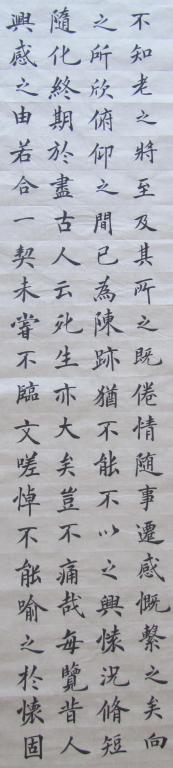 不知老之將至及其所之既倦情隨事遷感慨繫之矣向
之所欣俯仰之間已為陳跡猶不能不以之興懷況脩短
隨化終期於盡古人云死生亦大矣豈不痛哉每覽昔人
興感之由若合一契未嘗不臨文嗟悼不能喻之於懷固